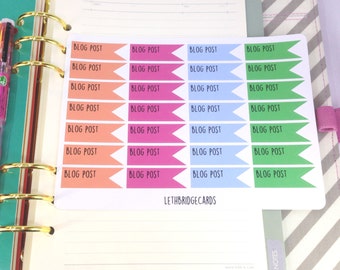 BLOG POST BLOG POST BLOG POST BLOG POST
BLOG POST BLOG POST BLOG POST BLOG POST
BLOG POST BLOG POST BLOG POST BLOG POST
BLOG POST BLOG POST BLOG POST BLOG POST
BLOG POST BLOG POST BLOG POST BLOG POST
BLOG POST BLOG POST BLOG POST BLOG POST
BLOG POST BLOG POST BLOG POST BLOG POST
LETHBRIDGECARDS